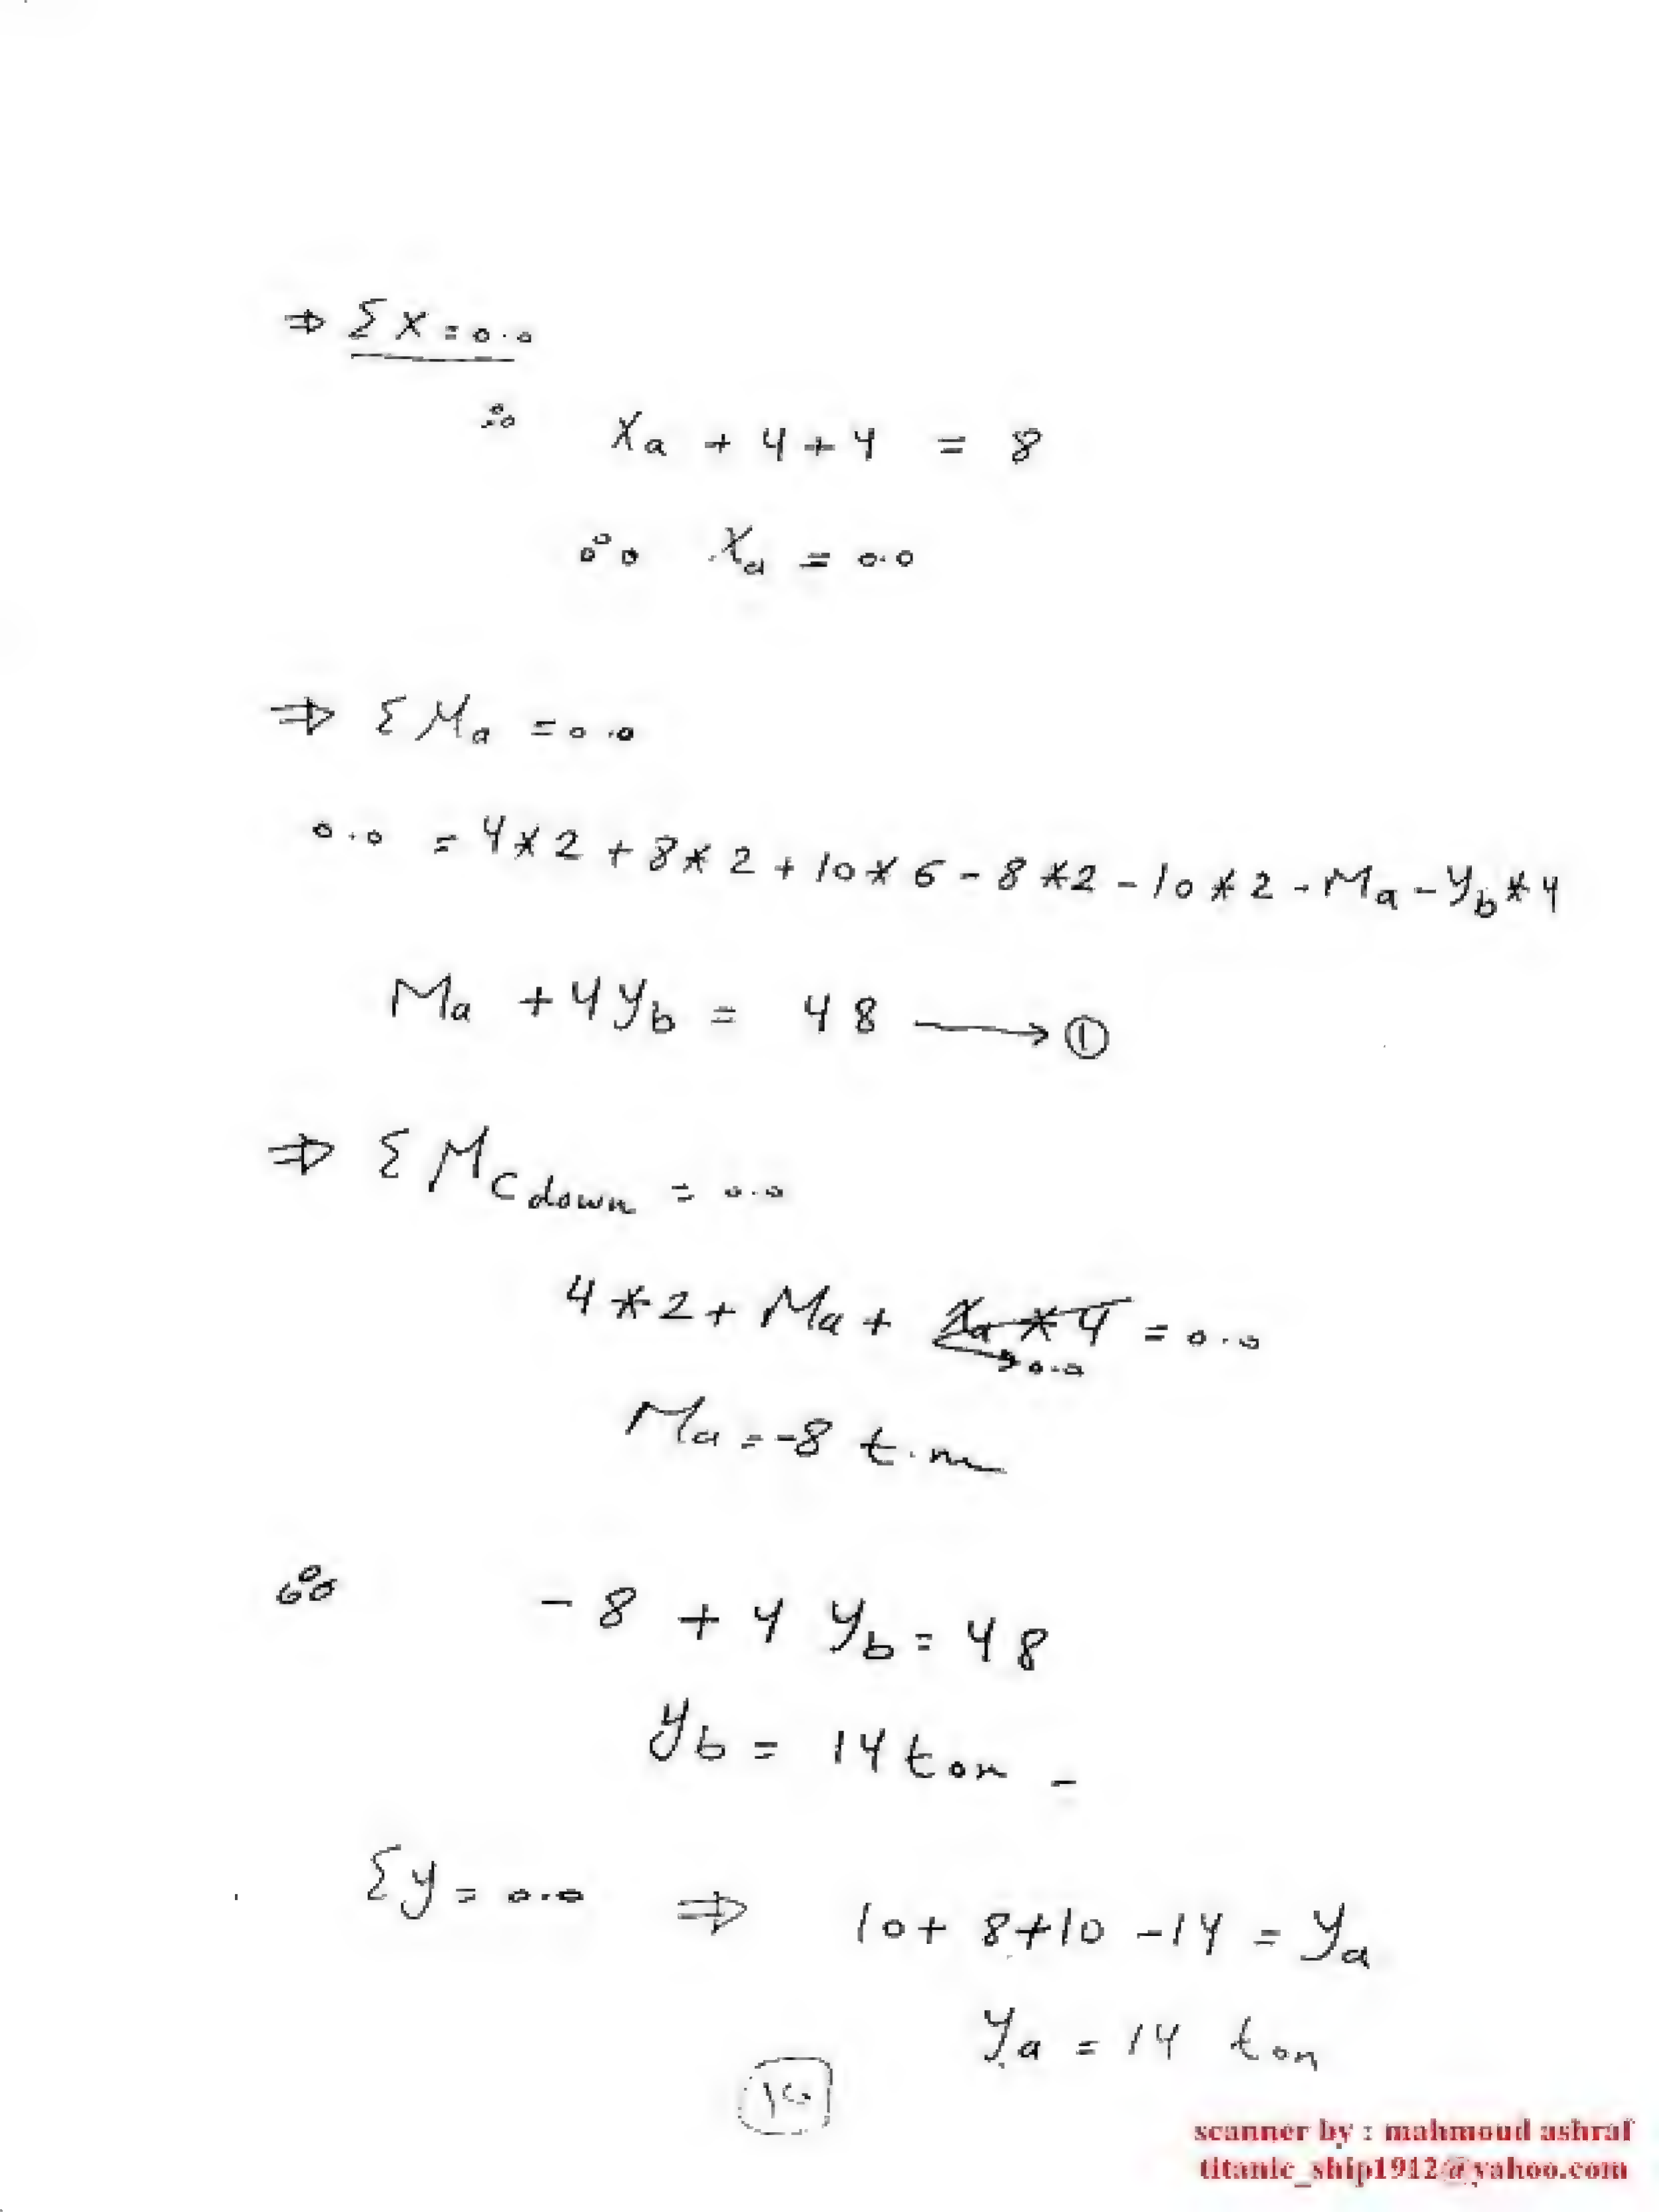 ⇒ ΣX = 0.0
∴ Xa + 4 + 4 = 8
∴ Xa = 0.0
⇒ ΣMa = 0.0
0.0 = 4*2 + 8*2 + 10*6 - 8*2 - 10*2 - Ma - Yb*4
Ma + 4Yb = 48 ⟶ ①
⇒ ΣMc down = 0.0
4*2 + Ma + Xa*4 = 0.0
→ 0.0
Ma = -8 t.m
∴ -8 + 4 Yb = 48
Yb = 14 ton
Σy = 0.0 ⇒ 10 + 8 + 10 - 14 = Ya
Ya = 14 ton
scanner by : mahmoud ashraf
titanic_ship1912@yahoo.com